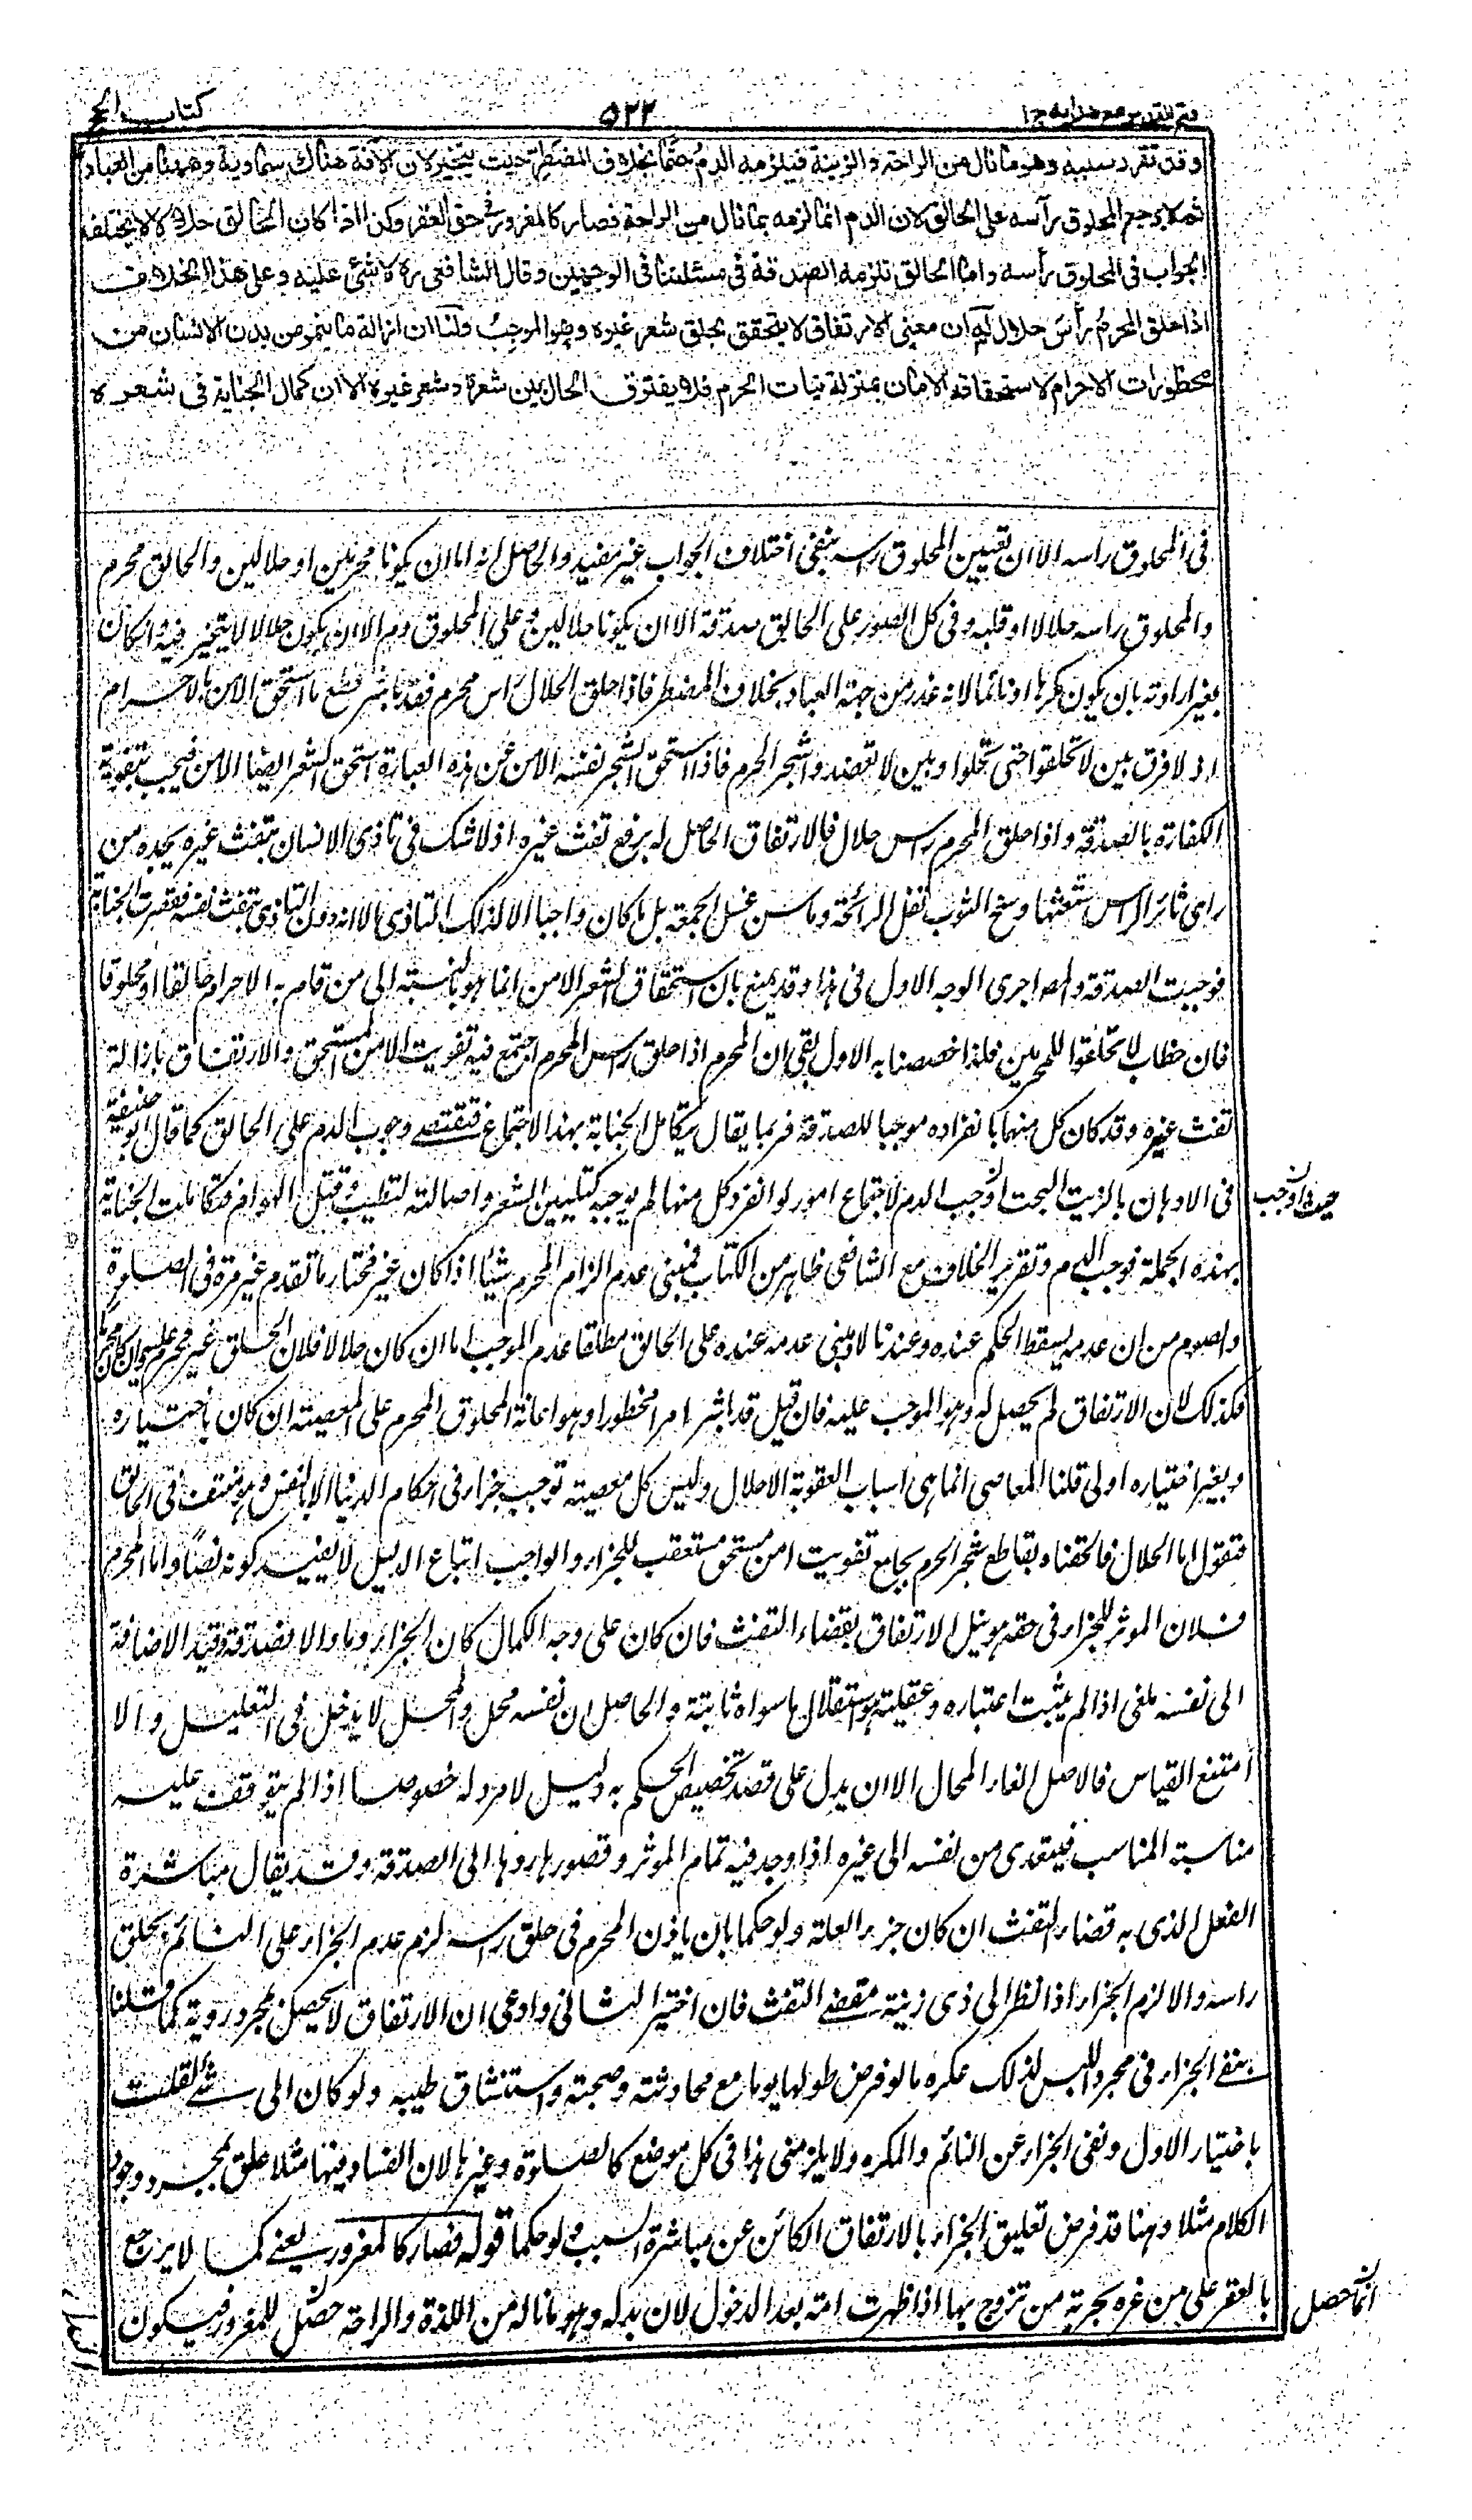 فتح القدير مع هدايه ج ۱
۵۲۲
كتاب الحج
وقد تقرر سببه وهو ما نال من الراحة والزينة فيلزمه الدم حتما بخلاف المضطر حيث يتخير لان الآفة هناك سماوية وههنا من العباد
ثم لا يرجع المحلوق رأسه على الحالق لان الدم انما لزمه بما نال من الراحة فصار كالمغرور في حق العقر وكذا اذا كان الحالق حلالا لا يختلف
الجواب في المحلوق رأسه واما الحالق تلزمه الصدقة في مسئلتنا في الوجهين وقال الشافعى ره لا شئ عليه وعلى هذا الخلاف
اذا حلق المحرم رأس حلال له ان معنى الارتفاق لا يتحقق بحلق شعر غيره وهو الموجب ولنا ان ازالة ما ينمو من بدن الانسان من
محظورات الاحرام لاستحقاقه الامان بمنزلة نبات الحرم فلا يفترق الحال بين شعره وشعر غيره الا ان كمال الجناية في شعره
فى المحلوق راسه الا ان تعيين المحلوق راسه ينفى اختلاف الجواب غير مفيد والحاصل انه اما ان يكونا محرمين او حلالين والحالق محرم
والمحلوق راسه حلالا او قلبه وفى كل الصور على الحالق صدقة الا ان يكونا حلالين وعلى المحلوق دم الا ان يكون حلالا لا يتخير فيه وان كان
بغير ارادته بان يكون مكرها او نائما لانه عذر من جهة العباد بخلاف المضطر فاذا حلق الحلال راس محرم فقد باشر قطع ما استحق الامن بالاحرام
اذ لا فرق بين لا تحلقوا حتى تحلوا وبين لا تعضدوا شجر الحرم فاذا استحق الشجر نفسه الامن عن هذه العبارة استحق الشعر ايضا الامن فيجب بتفويته
الكفارة بالصدقة واذا حلق المحرم راس حلال فالارتفاق الحاصل له برفع تفث غيره اذ لا شك فى تاذى الانسان بتفث غيره يجده من
راى ثائر الراس شعثها وسخ الثوب تفل الرائحة وما سن غسل الجمعة بل ما كان واجبا الا لذلك التاذى الا انه دون التاذى بتفث نفسه فقصرت الجناية
فوجبت الصدقة والمصـ اجرى الوجه الاول فى هذا وقد يمنع بان استحقاق الشعر الامن انما هو بالنسبة الى من قام به الاحرام حالقا او محلوقا
فان خطاب لا تحلقوا للمحرمين فلذا خصصنا به الاول بقى ان المحرم اذا حلق راس المحرم اجتمع فيه تفويت الامن المستحق والارتفاق بازالة
تفث غيره وقد كان كل منهما بانفراده موجبا للصدقة فربما يقال بتكامل الجناية بهذا الاجتماع فتقتضے وجوب الدم على الحالق كما قال ابو حنيفة
فى الادهان بالزيت البحت اوجب الدم لاجتماع امور لو انفرد كل منها لم يوجبه كتليين الشعر واصالته لتطيب وقتل الهوام فتكاملت الجناية
حيث اوجب
بهذه الجملة فوجب الدم وتقرير الخلاف مع الشافعى ظاهر من الكتاب فمبنى عدم الزام المحرم شيئا اذا كان غير مختار ما تقدم غير مرة فى الصلوة
والصوم من ان عدمه يسقط الحكم عنده وعندنا لا ومبنى عدمه عنده على الحالق مطلقا عدم الموجب اما ان كان حلالا فلان الحلق غير محرم عليه وان كان محرما
فكذلك لان الارتفاق لم يحصل له وهو الموجب عليه فان قيل قد باشر امرا محظورا وهو اعانة المحلوق المحرم على المعصية ان كان باختياره
وبغير اختياره اولى قلنا المعاصى انما هى اسباب لعقوبة الاحلال وليس كل معصية توجب جزاء فى احكام الدنيا الا بالنص وهو منتف فى الحالق
فنقول اما الحلال فالحقناه بقاطع شجر الحرم بجامع تفويت امن مستحق مستعقب للجزاء والواجب اتباع الدليل لا يفيد كونه نصا واما المحرم
فلان الموثر للجزاء فى حقه هو نيل الارتفاق بقضاء التفث فان كان على وجه الكمال كان الجزاء دما والا فصدقة وقيد الاضافة
الى نفسه ملغى اذا لم يثبت اعتباره وعقلية هو استقلال ما سواه ثابتة والحاصل ان نفسه محل والمحل لا يدخل فى التعليل والا
امتنع القياس فالاصل الغاء المحال الا ان يدل على قصد تخصيص الحكم به دليل لا مرد له خصوصا اذا لم يتوقف عليه
مناسبة المناسب فيتعدى من نفسه الى غيره اذا وجد فيه تمام الموثر وقصورها ردها الى الصدقة وقد يقال مباشرة
الفعل الذى به قضاء التفث ان كان جزء العلة ولو حكما بان ياذن المحرم فى حلق راسه لزم عدم الجزاء على النائم بحلق
راسه والا لزم الجزاء اذا نظر الى ذى زينة مقضے التفث فان اختير الثانى وادعى ان الارتفاق لا يحصل بمجرد روية كما قلنا
بنفے الجزاء فى مجرد اللبس لذلك عكره ما لو فرض طولها يوما مع محادثته وصحبته واستنشاق طيبه ولو كان الى شئ لقلت
باختيار الاول ونفى الجزاء عن النائم والمكره ولا يلزمنى هذا فى كل موضع كالصلوة وغيرها لان الفساد فيها مثلا علق بمجرد وجود
الكلام مثلا وهنا قد فرض تعليق الجزاء بالارتفاق الكائن عن مباشرة السبب ولو حكما قوله فصار كالمغرور يعنے كما لا يرجع
بالعقر على من غره بحرية من تزوج بها اذا ظهرت امة بعد الدخول لان بدله وهو ما ناله من اللذة والراحة حصل للمغرور فيكون
انما حصل